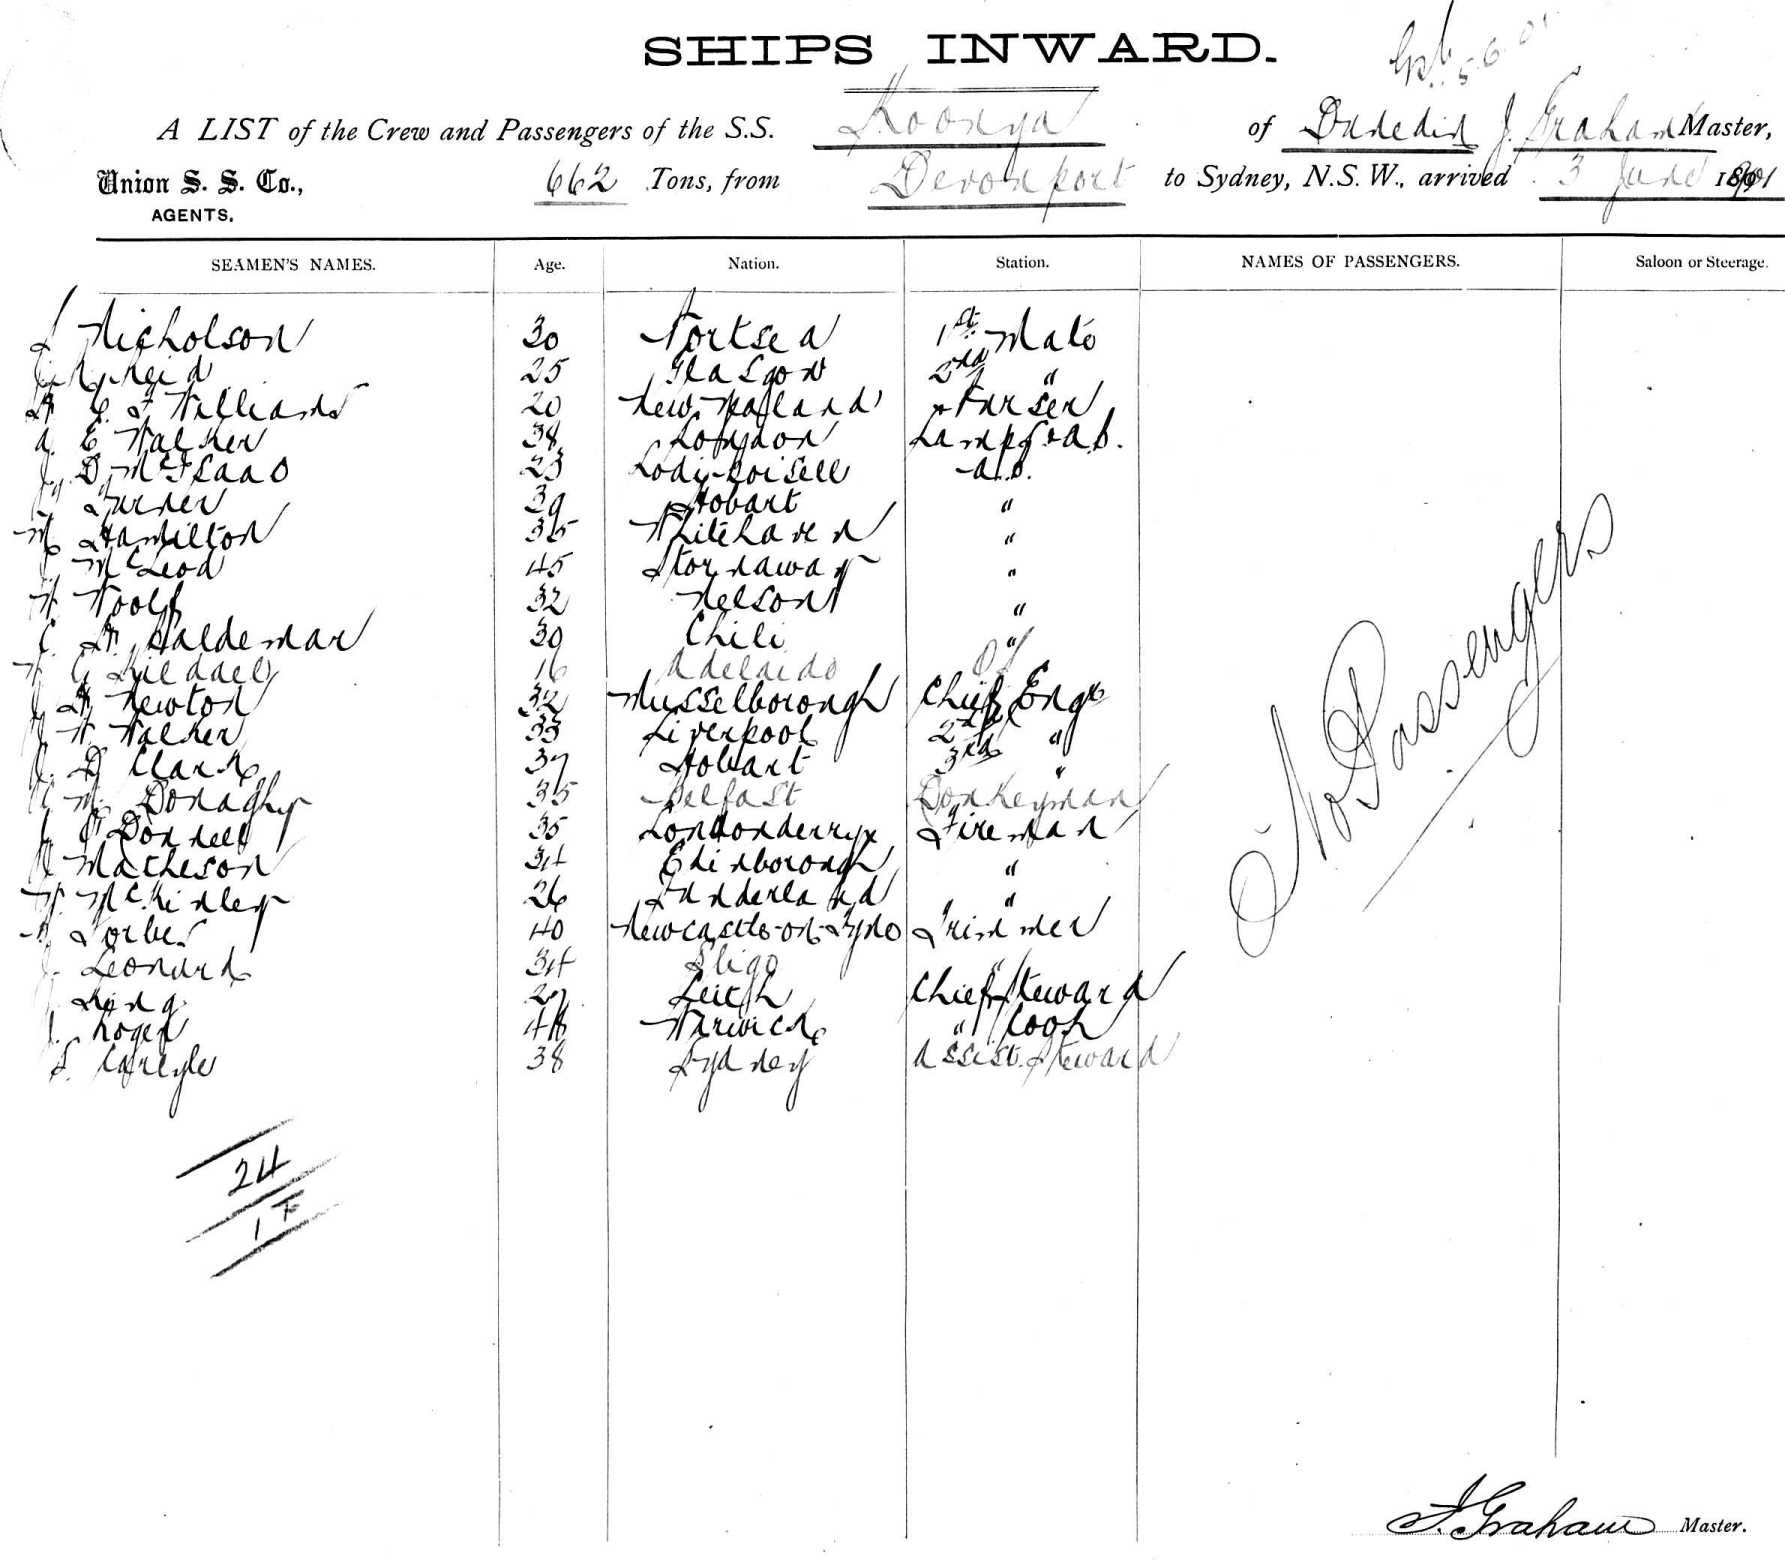 SHIPS INWARD.
A LIST of the Crew and Passengers of the S.S. Koonya of Dunedin J. Graham Master,
Union S. S. Co., 662 Tons, from Devonport to Sydney, N.S.W., arrived 3 June 1901
AGENTS.
SEAMEN'S NAMES. Age. Nation. Station. NAMES OF PASSENGERS. Saloon or Steerage.
Nicholson 30 Portsea 1st Mate
Reid 25 Glasgow 2nd "
Williams 20 New Zealand Purser
A. E. Walker 38 London Lamps & A.B.
D. McIsaac 23 A.B.
Turner 39 Hobart "
Hamilton 35 Whitehaven "
McLeod 45 Stornaway "
W. Woolf 32 Nelson "
Haldemar 30 Chili "
16 Adelaide
Newton 32 Musselborough Chief Engr
W. Walker 33 Liverpool 2nd "
D. Clark 37 Hobart 3rd "
Donaghy 35 Belfast Donkeyman
Donnell 35 Londonderry Fireman
Matheson 34 Edinborough "
McKinley 26 Sunderland "
Forbes 40 Newcastle-on-Tyne Trimmer
Leonard 34 Sligo "
King 27 Leith Chief Steward
J. Roger 48 Warwick " Cook
S. Carlyle 38 Sydney Assist. Steward
No Passengers
24
1
J. Graham Master.